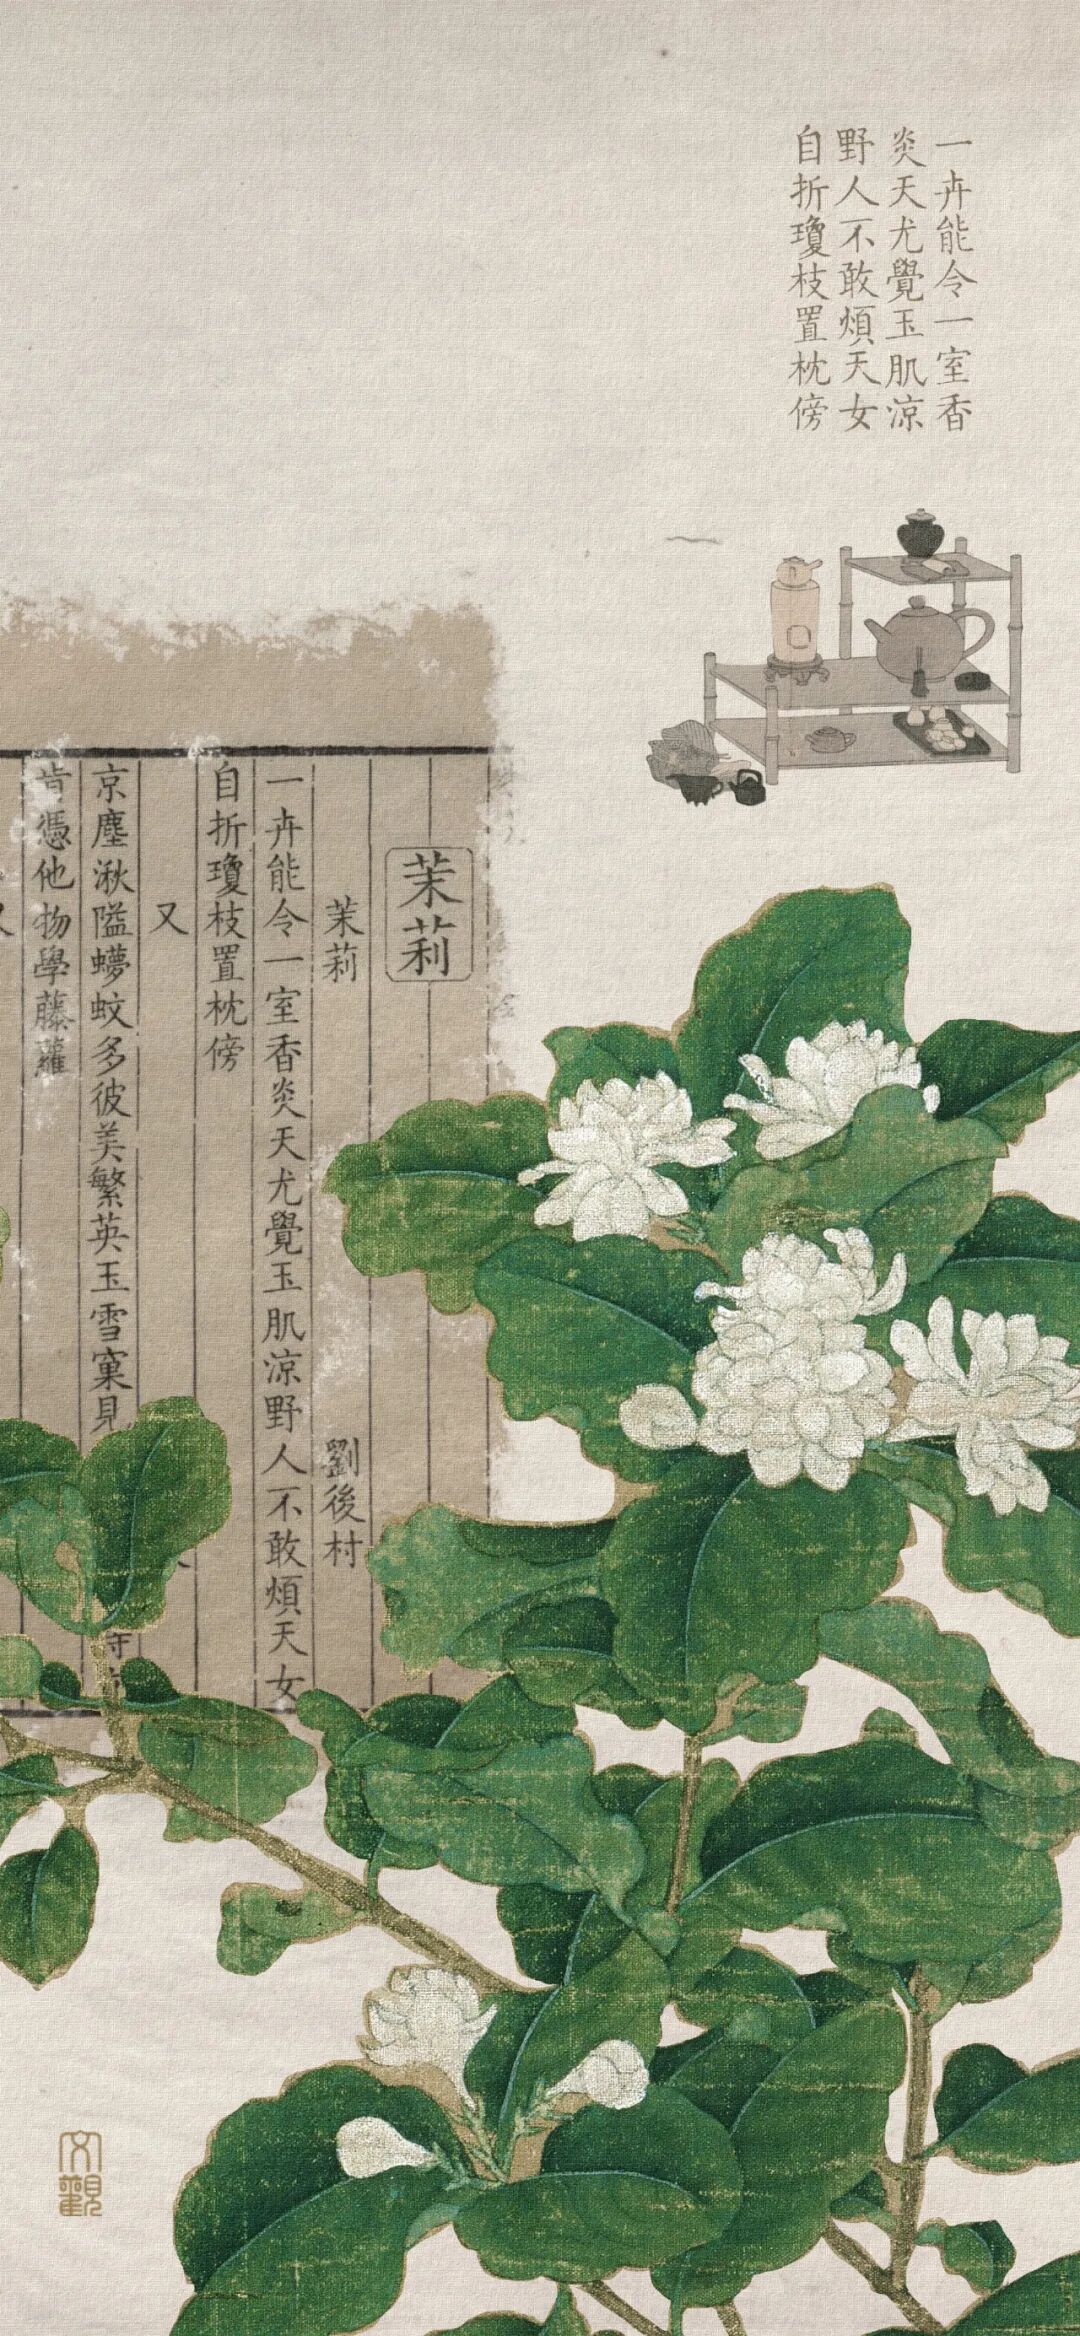 一卉能令一室香
炎天尤覺玉肌涼
野人不敢煩天女
自折瓊枝置枕傍
茉莉
茉莉 劉後村
一卉能令一室香炎天尤覺玉肌涼野人不敢煩天女
自折瓊枝置枕傍
又
京塵湫隘蠛蚊多彼美繁英玉雪窠見
肯憑他物學藤蘿
又
文觀